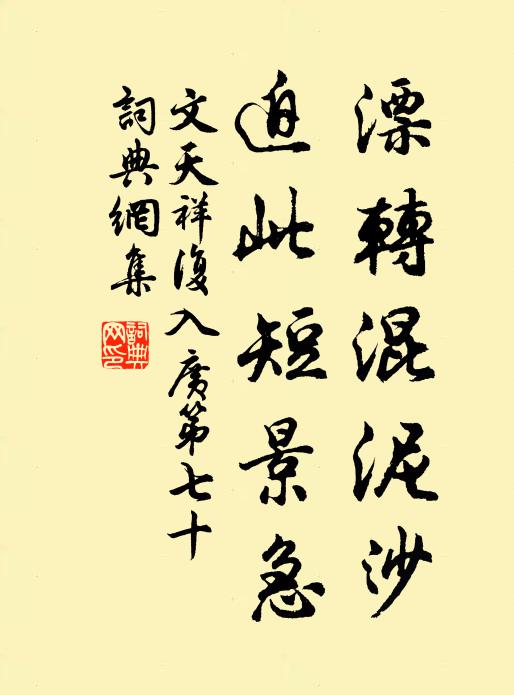 漂轉混泥沙
迫此短景急
文天祥復入廣第七十
詞典網集
詞典网印